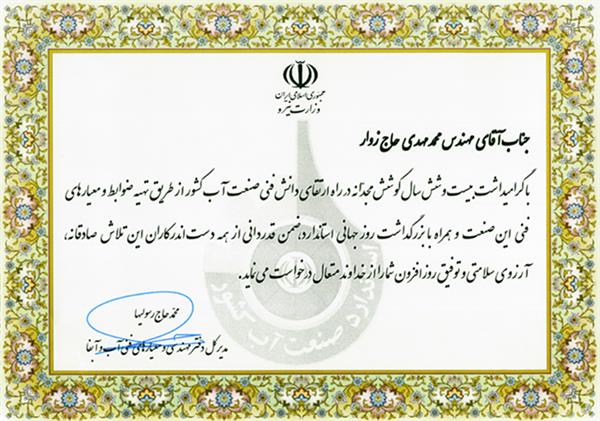 جمهوری اسلامی ایران
وزارت نیرو
جناب آقای مهندس محمد مهدی حاج زوار
با گرامیداشت بیست و شش سال کوشش مجدانه در راه ارتقای دانش فنی صنعت آب کشور از طریق تهیه ضوابط و معیارهای
فنی این صنعت و همراه با بزرگداشت روز جهانی استاندارد، ضمن قدردانی از همه دست اندرکاران این تلاش صادقانه،
آرزوی سلامتی و توفیق روزافزون شما را از خداوند متعال درخواست می نماید.
محمد حاج رسولیها
مدیر کل دفتر مهندسی و معیارهای فنی آب و آبفا
استاندارد صنعت آب کشور